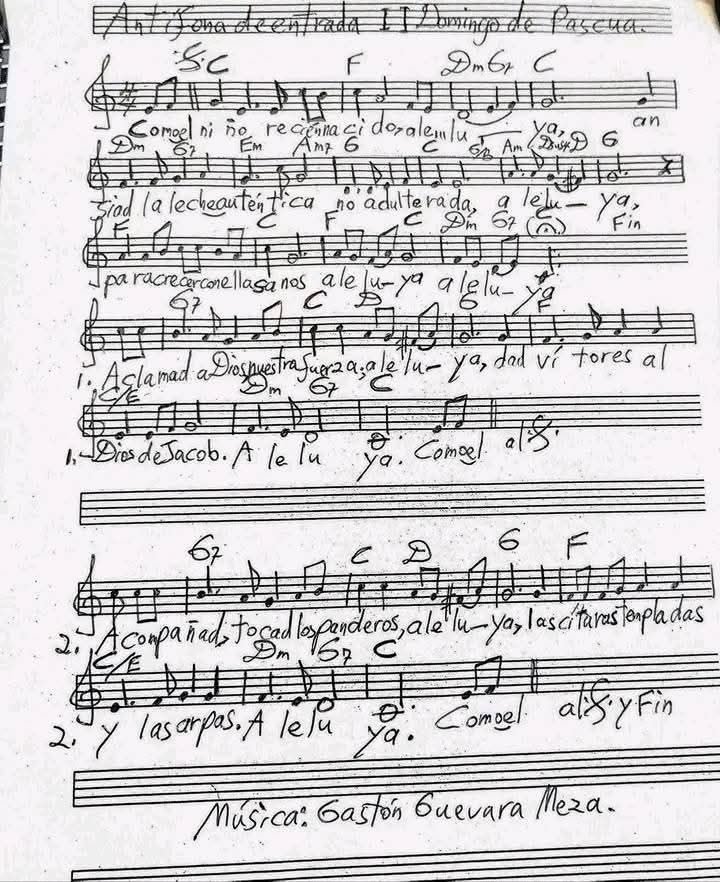 Antífona de entrada II Domingo de Pascua.
C F Dm G7 C
Como el niño recién nacido, alelu - ya, an
Dm G7 Em Am7 G C G/B Am Dsus4 D G
siad la leche auténtica no adulterada, a lelu - ya,
F C F C Dm G7 C Fin
para crecer con ella sanos alelu - ya alelu - ya
G7 C D G F
1. Aclamad a Dios nuestra fuerza, alelu - ya, dad ví tores al
C/E Dm G7 C
1. - Dios de Jacob. A le lu ya. Como el al
G7 C D G F
2. Acompañad, tocad los panderos, ale lu - ya, las cítaras templadas
C/E Dm G7 C
2. y las arpas. A lelu ya. Como el al y Fin
Música: Gastón Guevara Meza.